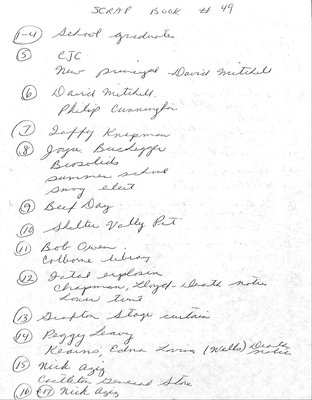 SCRAP BOOK # 49
1-4 School graduates
5 CJC
New principal David Mitchell
6 David Mitchell.
Philip Cunnington
7 Taffy Knapman
8 Joyce
Biosolids
summer school
snog elect
9 Beef Day
10 Shelter Vally Pit
11 Bob Owen.
Colborne library
12 Fatal explosin
Chapman, Lloyd - death notice
Lower
13 Grafton Stage curtain
14 Peggy Leavy
Kearns, Edna Lovina (Wells) Death notice
15 Nick Aziz
Castleton General Store
16 17 Nick Aziz